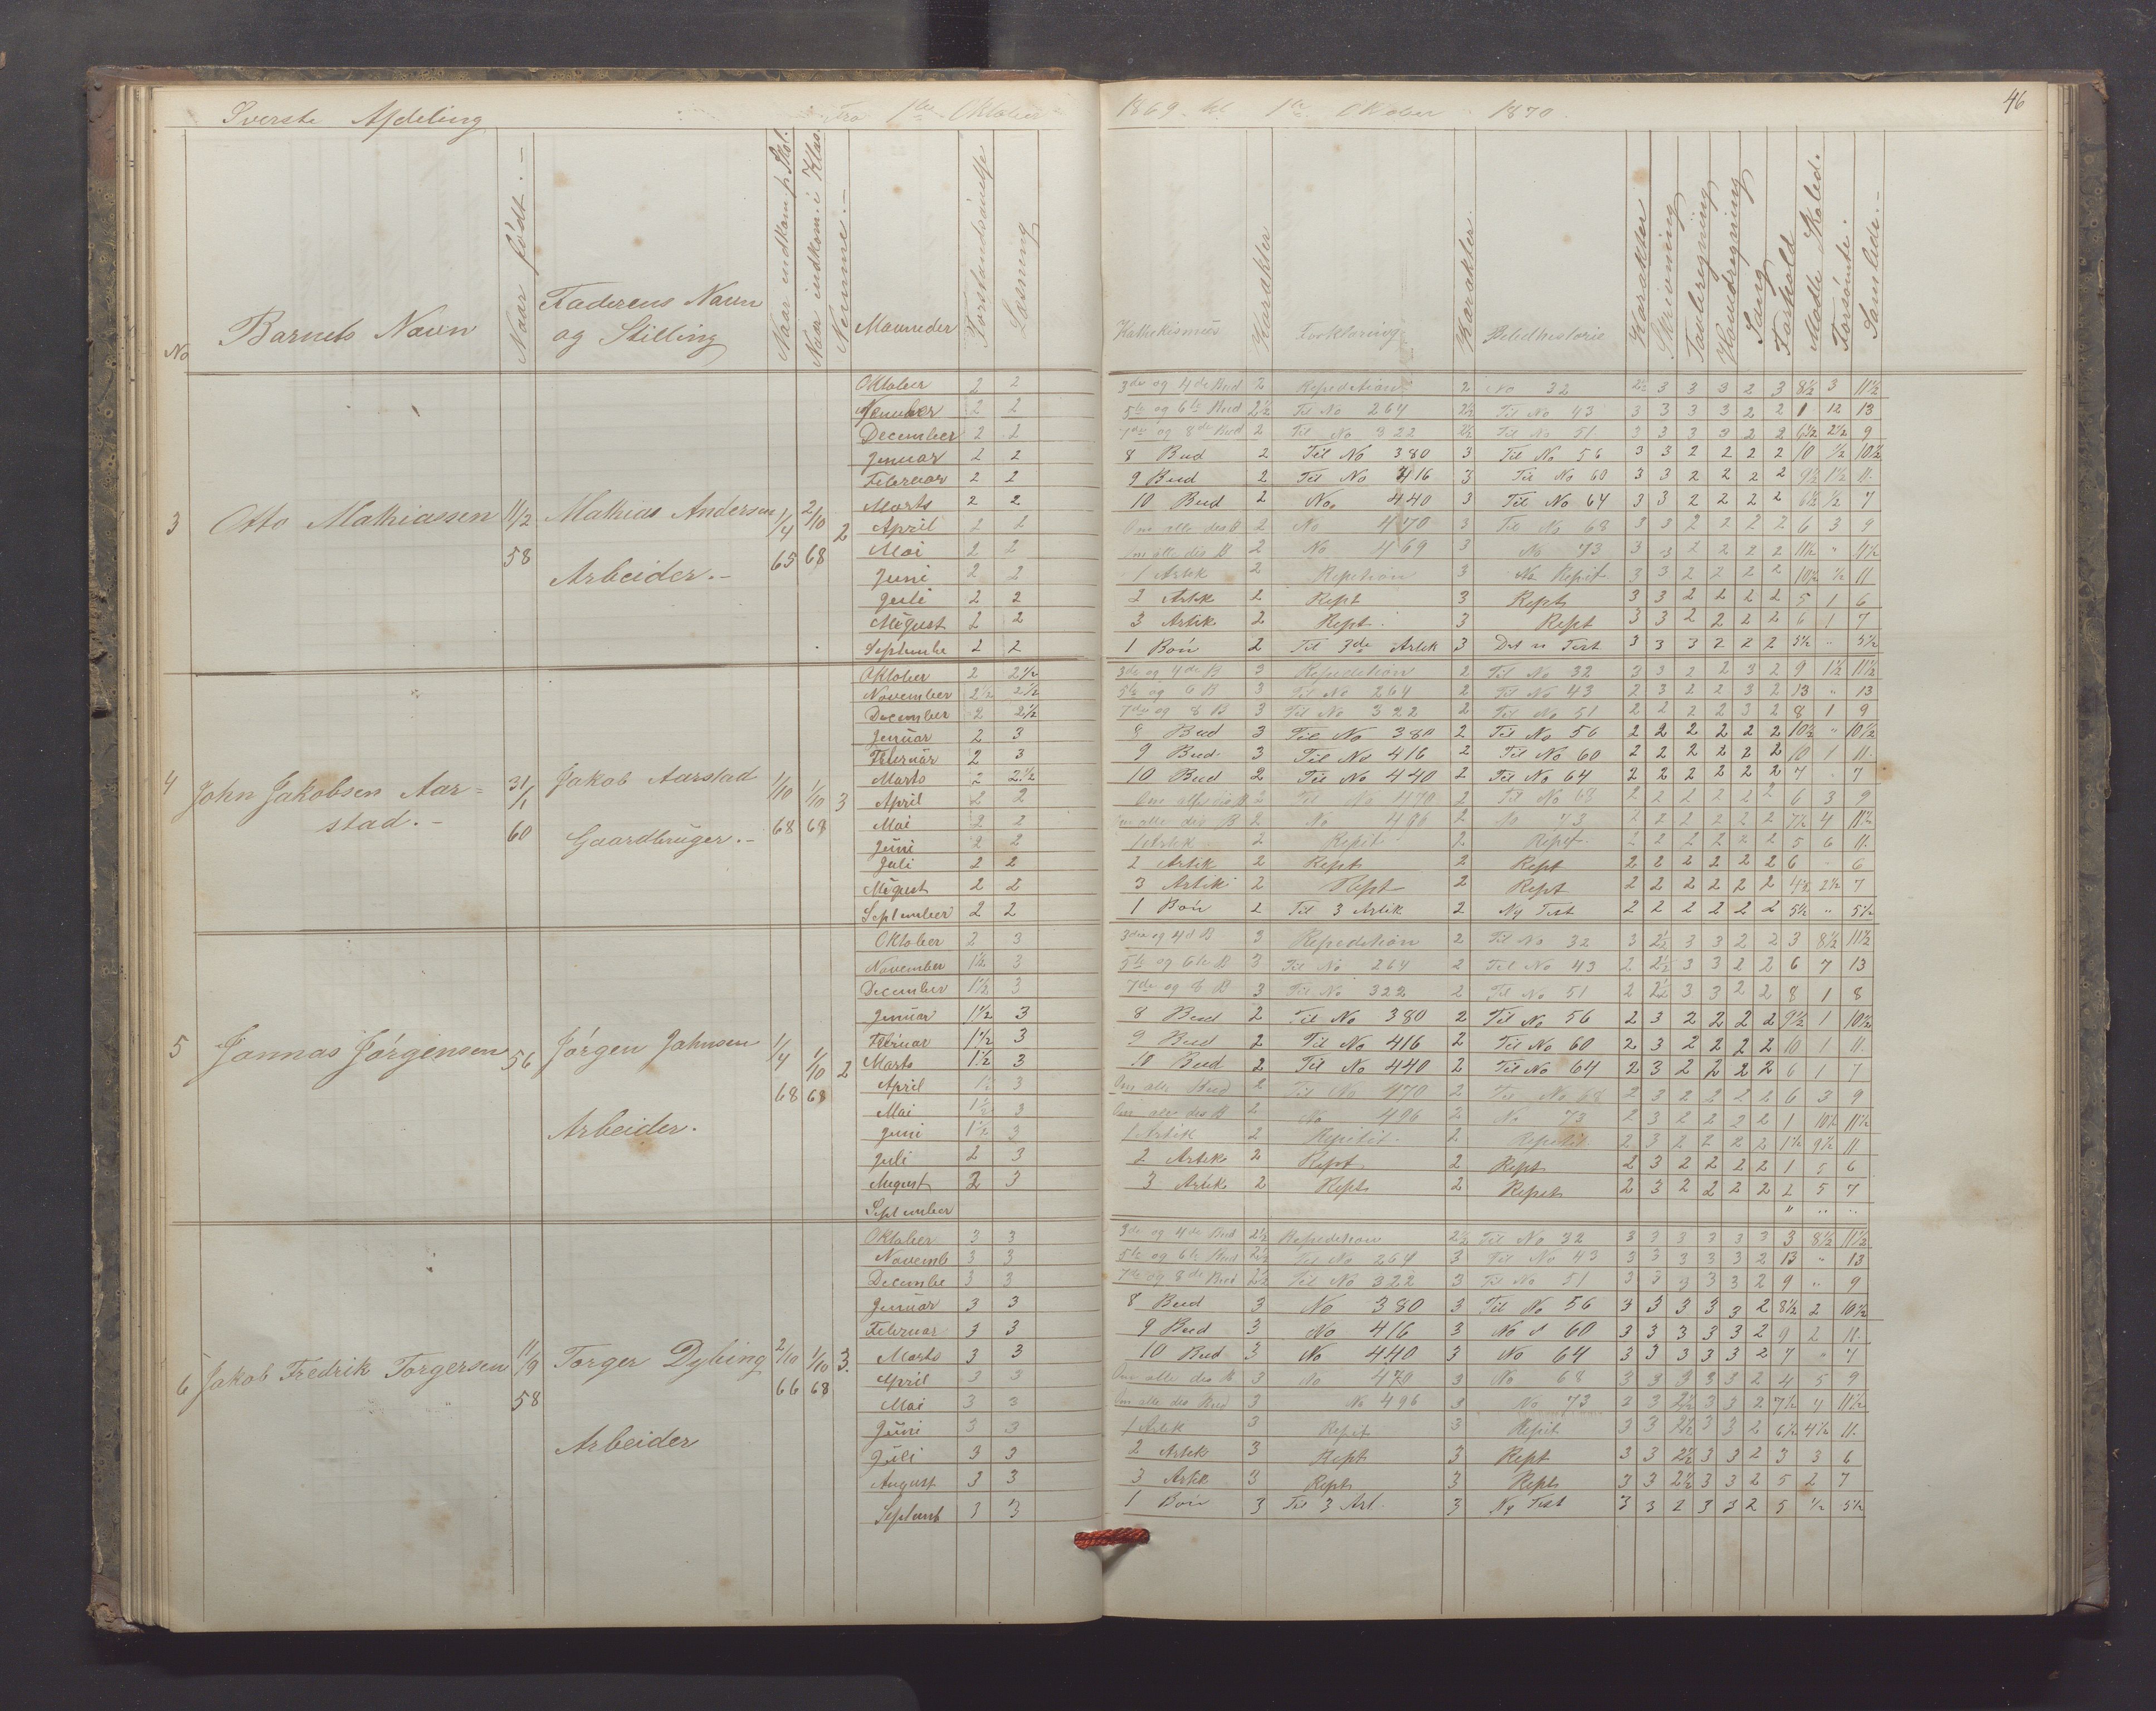 Överste Afdeling Fra 1ste Oktober 1869 til 1ste Oktober 1870. 46
No Barnets Navn Naar født.- Faderens Navn og Stilling Naar indkom. p. Skol. Naar indkom. i Klas. Nemme.- Maaneder Forstandsøvelse Læsning Kathekismus Karakter Forklaring Karakter. Bibelhistorie Karakter Skrivning Tavleregning Hovedregning Sang Forhold Mødte Skoled. Forsømte. Samlede.-
3 Otto Mathiassen 11/2 58 Mathias Andersen Arbeider.- 1/4 65 2/10 68 2
Oktober 2 2 3de og 4de Bud 2 Repedetion 2 No 32 2½ 3 3 3 2 3 8½ 3 11½
November 2 2 5te og 6te Bud 2½ Til No 264 2½ Til No 43 3 3 3 3 2 2 1 12 13
December 2 2 7de og 8de Bud 2 Til No 322 2½ Til No 51 3 3 3 3 2 2 6½ 2½ 9
Januar 2 2 8 Bud 2 Til No 380 3 Til No 56 3 3 2 2 2 2 10 ½ 10½
Februar 2 2 9 Bud 2 Til No 416 3 Til No 60 3 3 2 2 2 2 9½ 1½ 11.
Marts 2 2 10 Bud 2 No. 440 3 Til No 64 3 3 2 2 2 2 6½ ½ 7
April 2 2 Om alle des B 2 No 470 3 Til No 68 3 3 2 2 2 2 6 3 9
Mai 2 2 Om alle des B 2 No 469 3 No 73 3 3 2 2 2 2 11½ " 11½
Juni 2 2 1 Artik 2 Repetion 3 No Repit 3 3 2 2 2 2 10½ ½ 11
Juli 2 2 2 Artik 2 Rept 3 Rept 3 3 2 2 2 2 5 1 6
August 2 2 3 Artik 2 Rept. 3 Rept 3 3 2 2 2 2 6 1 7
Septembe 2 2 1 Bøn 2 Til 3de Artik 3 Det n Test 3 3 3 2 2 2 5½ " 5½
4 John Jakobsen Aar=
stad.- 31/1 60 Jakob Aarstad Gaardbruger.- 1/10 68 1/10 68 3
Oktober 2 2½ 3de og 4de B 3 Repedetion 2 Til No 32 3 3 2 2 3 2 9 1½ 11½
November 2½ 2½ 5te og 6 B 3 Til No 264 2 Til No 43 2 3 2 2 3 2 13 " 13
December 2 2½ 7de og 8 B 3 Til No 322 2 Til No 51 2 2 2 2 3 2 8 1 9
Januar 2 3 8 Bud 3 Til No 380 2 Til No 56 2 2 2 2 2 2 10½ " 10½
Februar 2 3 9 Bud. 3 Til No 416 2 Til No 60 2 2 2 2 2 2 10 1 11.
Marts 2 2½ 10 Bud 2 Til No 440 2 Til No 64 2 2 2 2 2 2 7 7
April 2 2 Om alle des B 2 Til No 470 2 Til No 68 2 2 2 2 2 2 6 3 9
Mai 2 2 Om alle des B 2 No 496 2 No 73 2 2 2 2 2 2 7½ 4 11½
Juni 2 2 1 Artik 2 Repit. 2 Repet. 2 2 2 2 2 2 5 6 11.
Juli 2 2 2 Artik 2 Rept 2 Rept 2 2 2 2 2 2 6 6
August 2 2 3 Artik 2 Rept 2 Rept 2 2 2 2 2 2 4½ 2½ 7
September 2 2 1 Bøn 2 Til 3 Artik 2 Ny Test 2 2 2 2 2 2 5½ " 5½
5 Jonnas Jørgensen 56 Jørgen Johnsen Arbeider. 1/4 68 1/10 68 2
Oktober 2 3 3die og 4d B 3 Repedetion 2 Til No 32 3 2½ 3 3 2 2 3 8½ 11½
November 1½ 3 5te og 6te B 3 Til No 264 2 Til No 43 2 2½ 3 3 2 2 6 7 13
December 1½ 3 7de og 8 B 3 Til No 322 2 Til No 51 2 2½ 3 3 2 2 8 1 8
Januar 1½ 3 8 Bud 2 Til No 380 2 Til No 56 2 3 2 2 2 2 9½ 1 10½
Februar 1½ 3 9 Bud 2 Til No 416 2 Til No 60 2 3 2 2 2 2 10 1 11.
Marts 1½ 3 10 Bud 2 Til No 440 2 Til No 64 2 3 2 2 2 2 6 1 7
April 1½ 3 Om alle Bud 2 Til No 470 2 Til No 68 2 3 2 2 2 2 6 3 9
Mai 1½ 3 Om alle des B 2 No 496 2 No 73 2 3 2 2 2 2 1 10½ 11½
Juni 1½ 3 1 Artik 2 Repitit. 2 Repetit 2 3 2 2 2 2 1½ 9½ 11
Juli 2 3 2 Artik 2 Rept 2 Rept 2 3 2 2 2 2 1 5 6
August 2 3 3 Artik 2 Rept 2 Repet 2 3 2 2 2 2 2 5 7
September " " "
6 Jakob Fredrik Torgersen 11/9 58 Torger Dybing Arbeider 2/10 66 1/10 68 3.
Oktober 3 3 3de og 4de Bud 2½ Repedetion 2½ Til No 32 3 3 3 3 3 3 3 8½ 11½
Novemb 3 3 5te og 6te Bud 2½ Til No 264 3 Til No 43 3 3 3 3 3 2 13 " 13
Decembe 3 3 7de og 8de Bud 2½ Til No 322 3 Til No 51 3 3 3 3 3 2 9 " 9
Januar 3 3 8 Bud 3 No 380 3 Til No 56 3 3 3 3 3 2 8½ 2 10½
Februar 3 3 9 Bud 3 No 416 3 No 60 3 3 3 3 3 2 9 2 11.
Marts 3 3 10 Bud 3 No 440 3 No 64 3 3 3 3 3 2 7 " 7
April 3 3 Om alle des B 3 No 470 3 No 68 3 3 3 3 3 2 4 5 9
Mai 3 3 Om alle des Bud 3 No 496 3 No 73 3 3 2½ 3 3 2 7½ 4 11½
Juni 3 3 1 Artik 3 Repit 3 Repit 3 3 2½ 3 3 2 6½ 4½ 11.
Juli 3 3 2 Artik 3 Rept 3 Rept 3 3 2½ 3 3 2 3 3 6
August 3 3 3 Artik 3 Rept 3 Rept 3 3 2½ 3 3 2 5 2 7
Septemb 3 3 1 Bøn 3 Til 3 Art. 3 Ny Test 3 3 2 3 3 2 5 ½ 5½